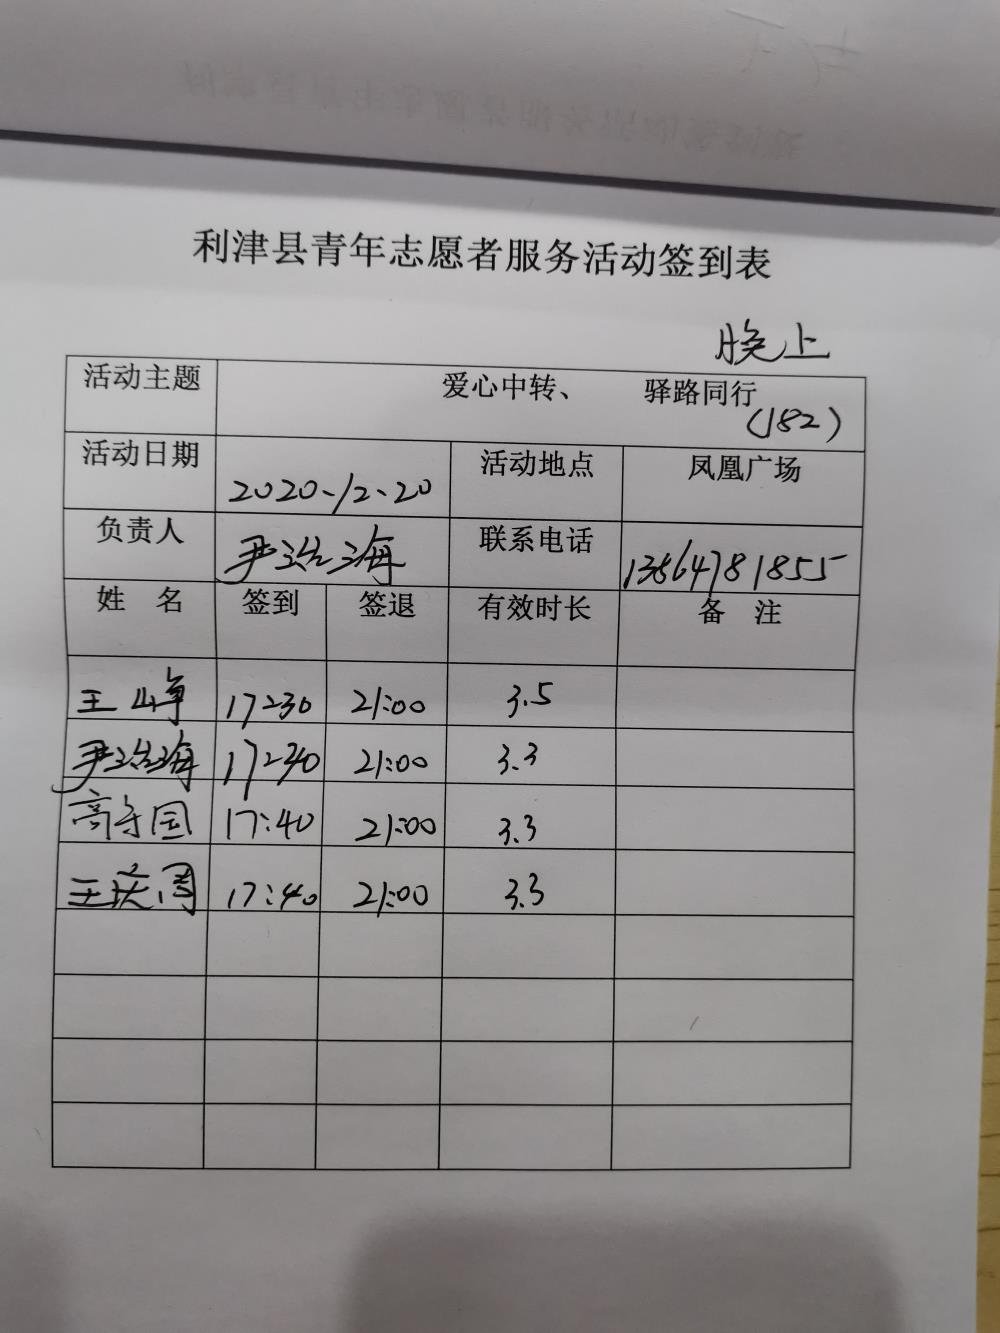 利津县青年志愿者服务活动签到表
晚上
活动主题 爱心中转、 驿路同行
(182)
活动日期 2020、12、20 活动地点 凤凰广场
负责人 尹浩海 联系电话 13864781855
姓 名 签到 签退 有效时长 备 注
王峥 17:30 21:00 3.5
尹浩海 17:40 21:00 3.3
高守国 17:40 21:00 3.3
王庆周 17:40 21:00 3.3